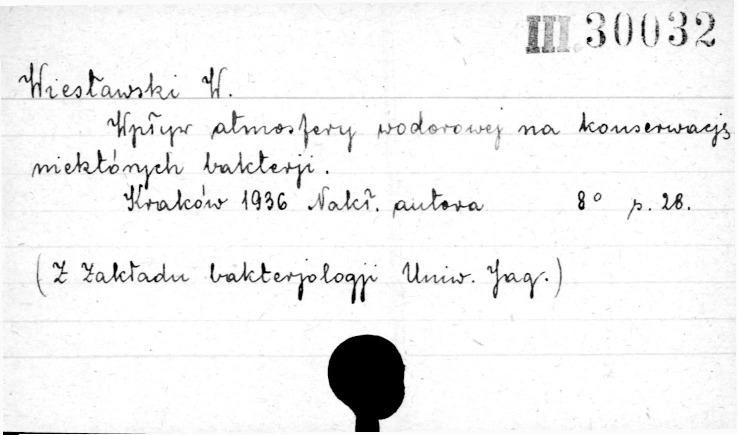 III 30032
Wiesławski W.
Wpływ atmosfery wodorowej na konserwację
niektórych bakterji.
Kraków 1936 Nakł. autora 8° p. 28.
(Z Zakładu bakterjologji Uniw. Jag.)